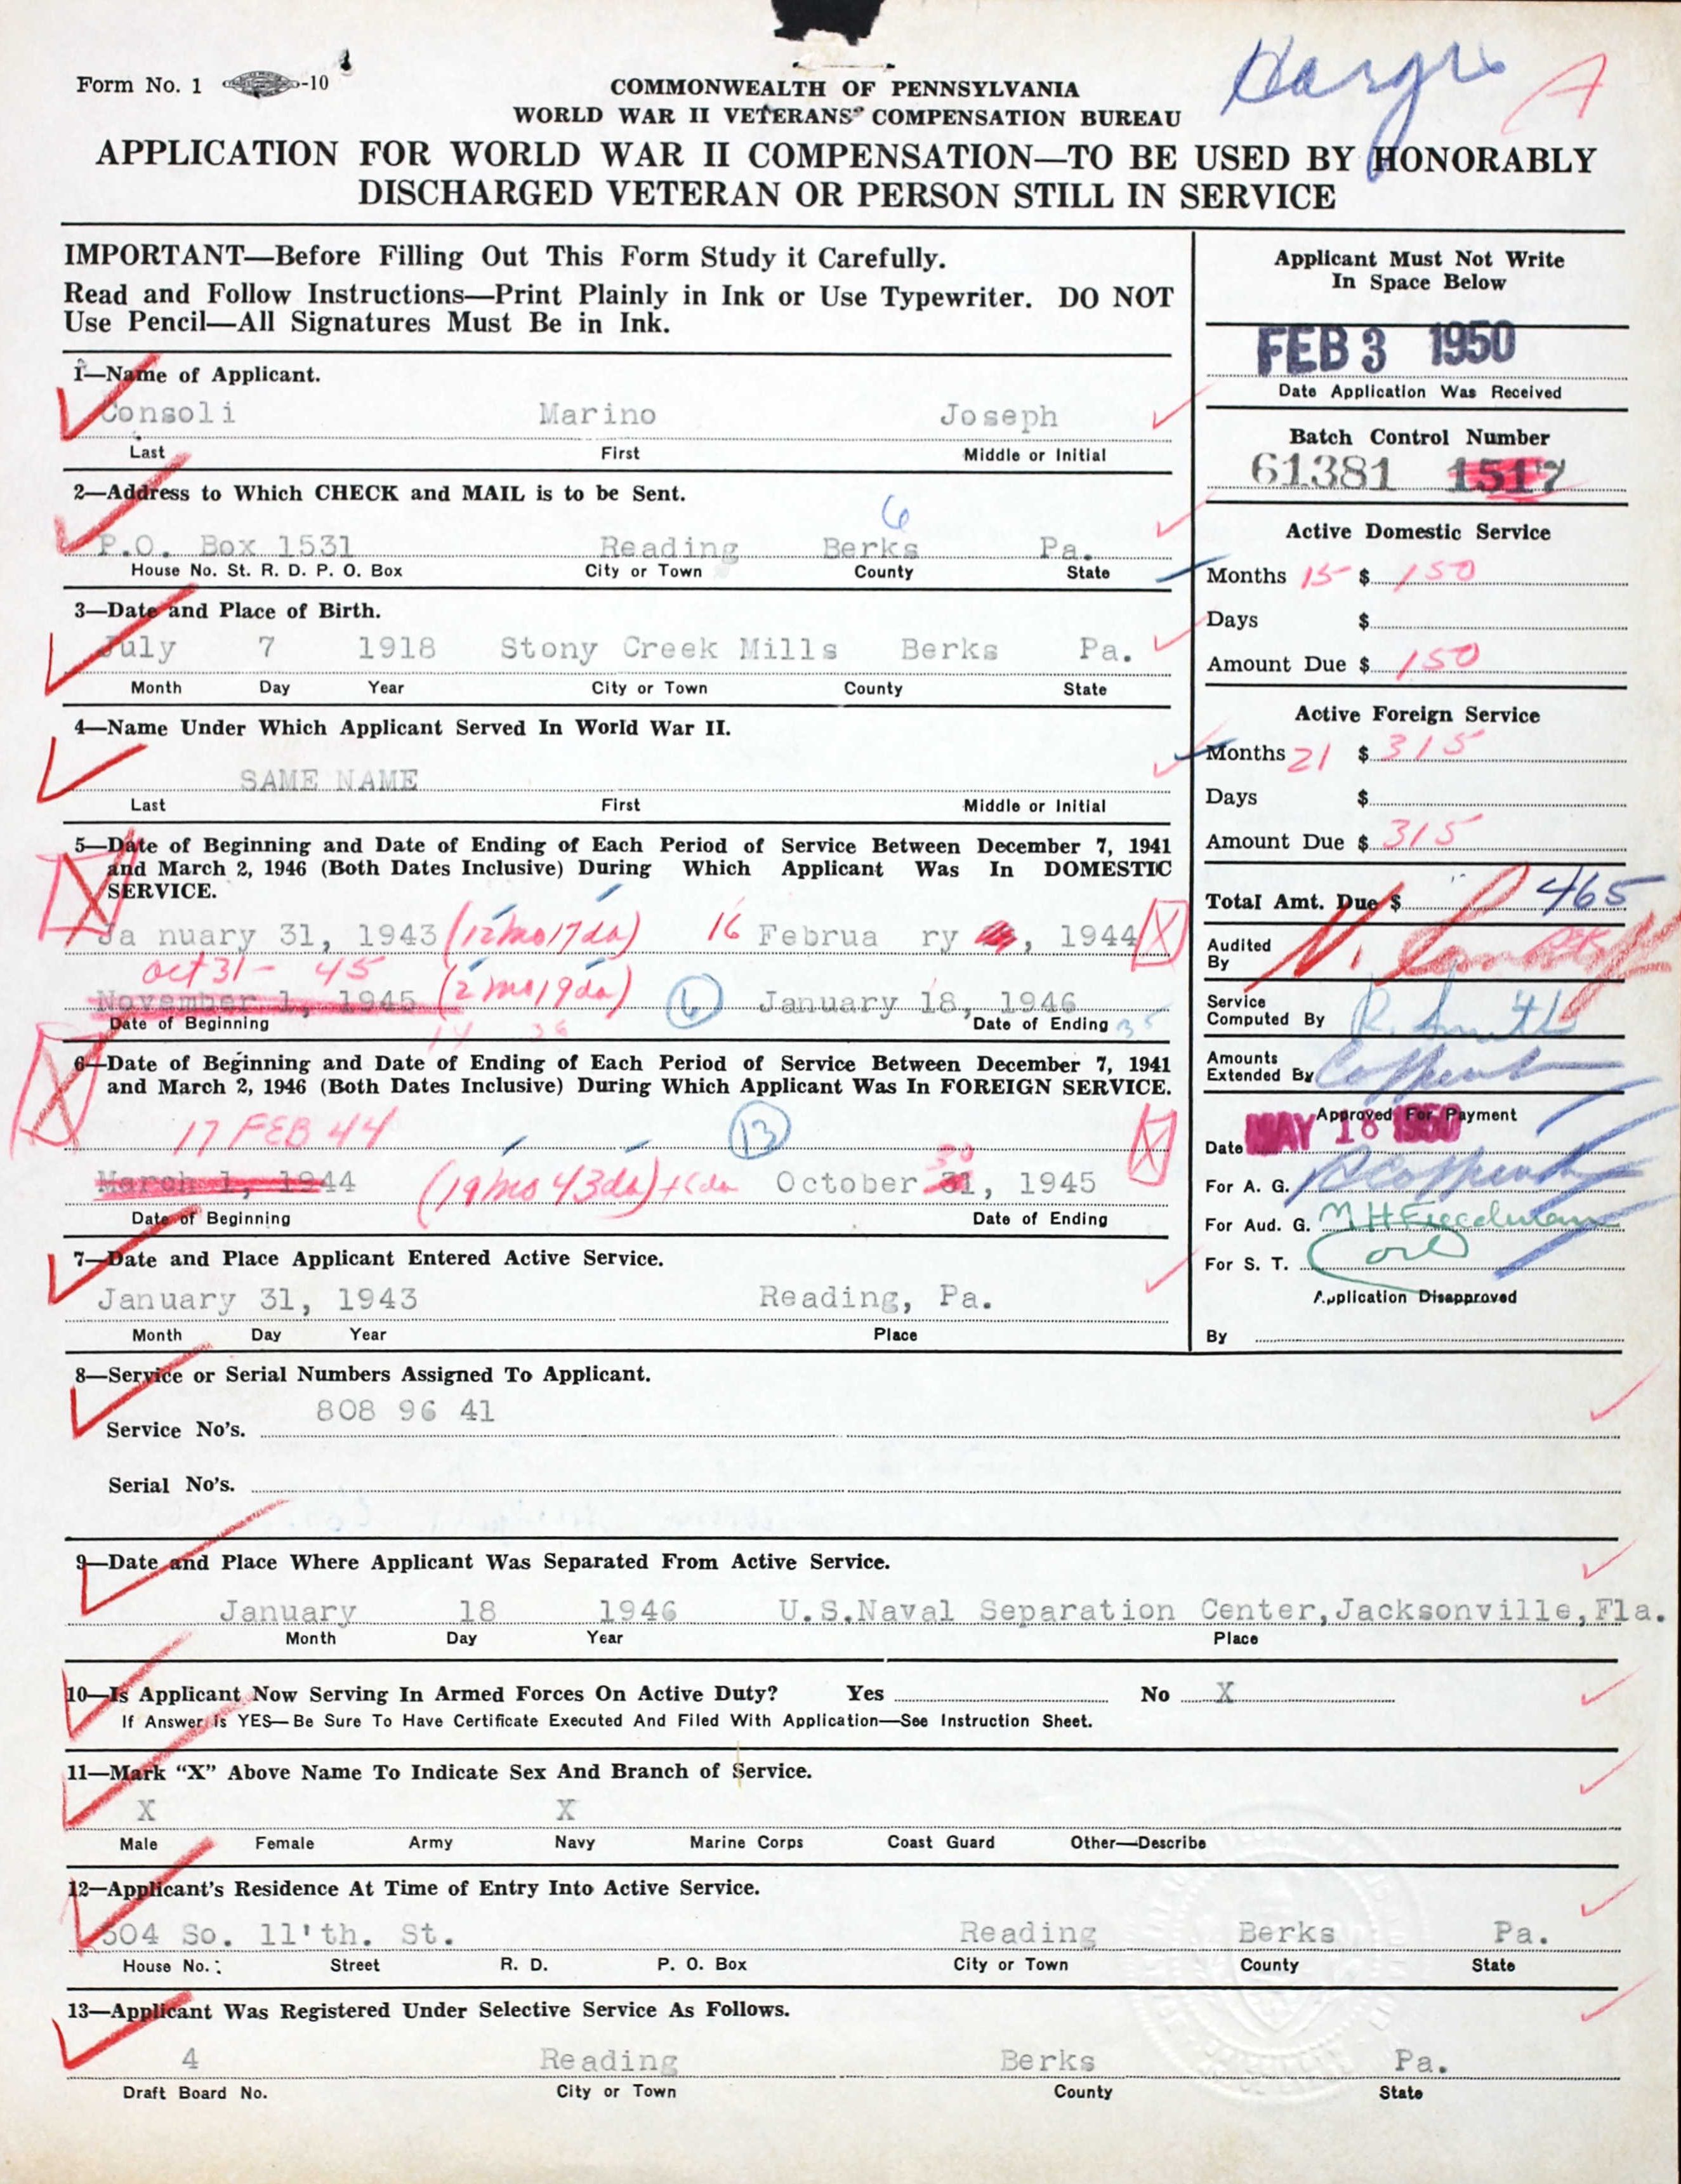 Form No. 1 -10
Hargis A
COMMONWEALTH OF PENNSYLVANIA
WORLD WAR II VETERANS' COMPENSATION BUREAU
APPLICATION FOR WORLD WAR II COMPENSATION—TO BE USED BY HONORABLY
DISCHARGED VETERAN OR PERSON STILL IN SERVICE
IMPORTANT—Before Filling Out This Form Study it Carefully.
Read and Follow Instructions—Print Plainly in Ink or Use Typewriter. DO NOT
Use Pencil—All Signatures Must Be in Ink.
1—Name of Applicant.
Consoli Marino Joseph
Last First Middle or Initial
2—Address to Which CHECK and MAIL is to be Sent.
6
P.O. Box 1531 Reading Berks Pa.
House No. St. R. D. P. O. Box City or Town County State
3—Date and Place of Birth.
July 7 1918 Stony Creek Mills Berks Pa.
Month Day Year City or Town County State
4—Name Under Which Applicant Served In World War II.
SAME NAME
Last First Middle or Initial
5—Date of Beginning and Date of Ending of Each Period of Service Between December 7, 1941
and March 2, 1946 (Both Dates Inclusive) During Which Applicant Was In DOMESTIC
SERVICE.
Ja nuary 31, 1943 (12mo17da) 16 Februa ry , 1944
Oct 31 - 45
November 1, 1945 (2 mo19da) 6 January 18, 1946
Date of Beginning Date of Ending 35
14 36
6—Date of Beginning and Date of Ending of Each Period of Service Between December 7, 1941
and March 2, 1946 (Both Dates Inclusive) During Which Applicant Was In FOREIGN SERVICE.
17 FEB 44 13
30
March 1, 1944 (19mo 43da) October 31, 1945
Date of Beginning Date of Ending
7—Date and Place Applicant Entered Active Service.
January 31, 1943 Reading, Pa.
Month Day Year Place
Applicant Must Not Write
In Space Below
FEB 3 1950
Date Application Was Received
Batch Control Number
61381 1517
Active Domestic Service
Months 15 $ 150
Days $
Amount Due $ 150
Active Foreign Service
Months 21 $ 315
Days $
Amount Due $ 315
Total Amt. Due $ 465
Audited
By
Service
Computed By R. Smith
Amounts
Extended By
Approved For Payment
Date MAY 18 1950
For A. G.
For Aud. G.
For S. T.
Application Disapproved
By
8—Service or Serial Numbers Assigned To Applicant.
808 96 41
Service No's.
Serial No's.
9—Date and Place Where Applicant Was Separated From Active Service.
January 18 1946 U.S.Naval Separation Center,Jacksonville,Fla.
Month Day Year Place
10—Is Applicant Now Serving In Armed Forces On Active Duty? Yes No X
If Answer is YES—Be Sure To Have Certificate Executed And Filed With Application—See Instruction Sheet.
11—Mark "X" Above Name To Indicate Sex And Branch of Service.
X X
Male Female Army Navy Marine Corps Coast Guard Other—Describe
12—Applicant's Residence At Time of Entry Into Active Service.
504 So. 11'th. St. Reading Berks Pa.
House No. Street R. D. P. O. Box City or Town County State
13—Applicant Was Registered Under Selective Service As Follows.
4 Reading Berks Pa.
Draft Board No. City or Town County State